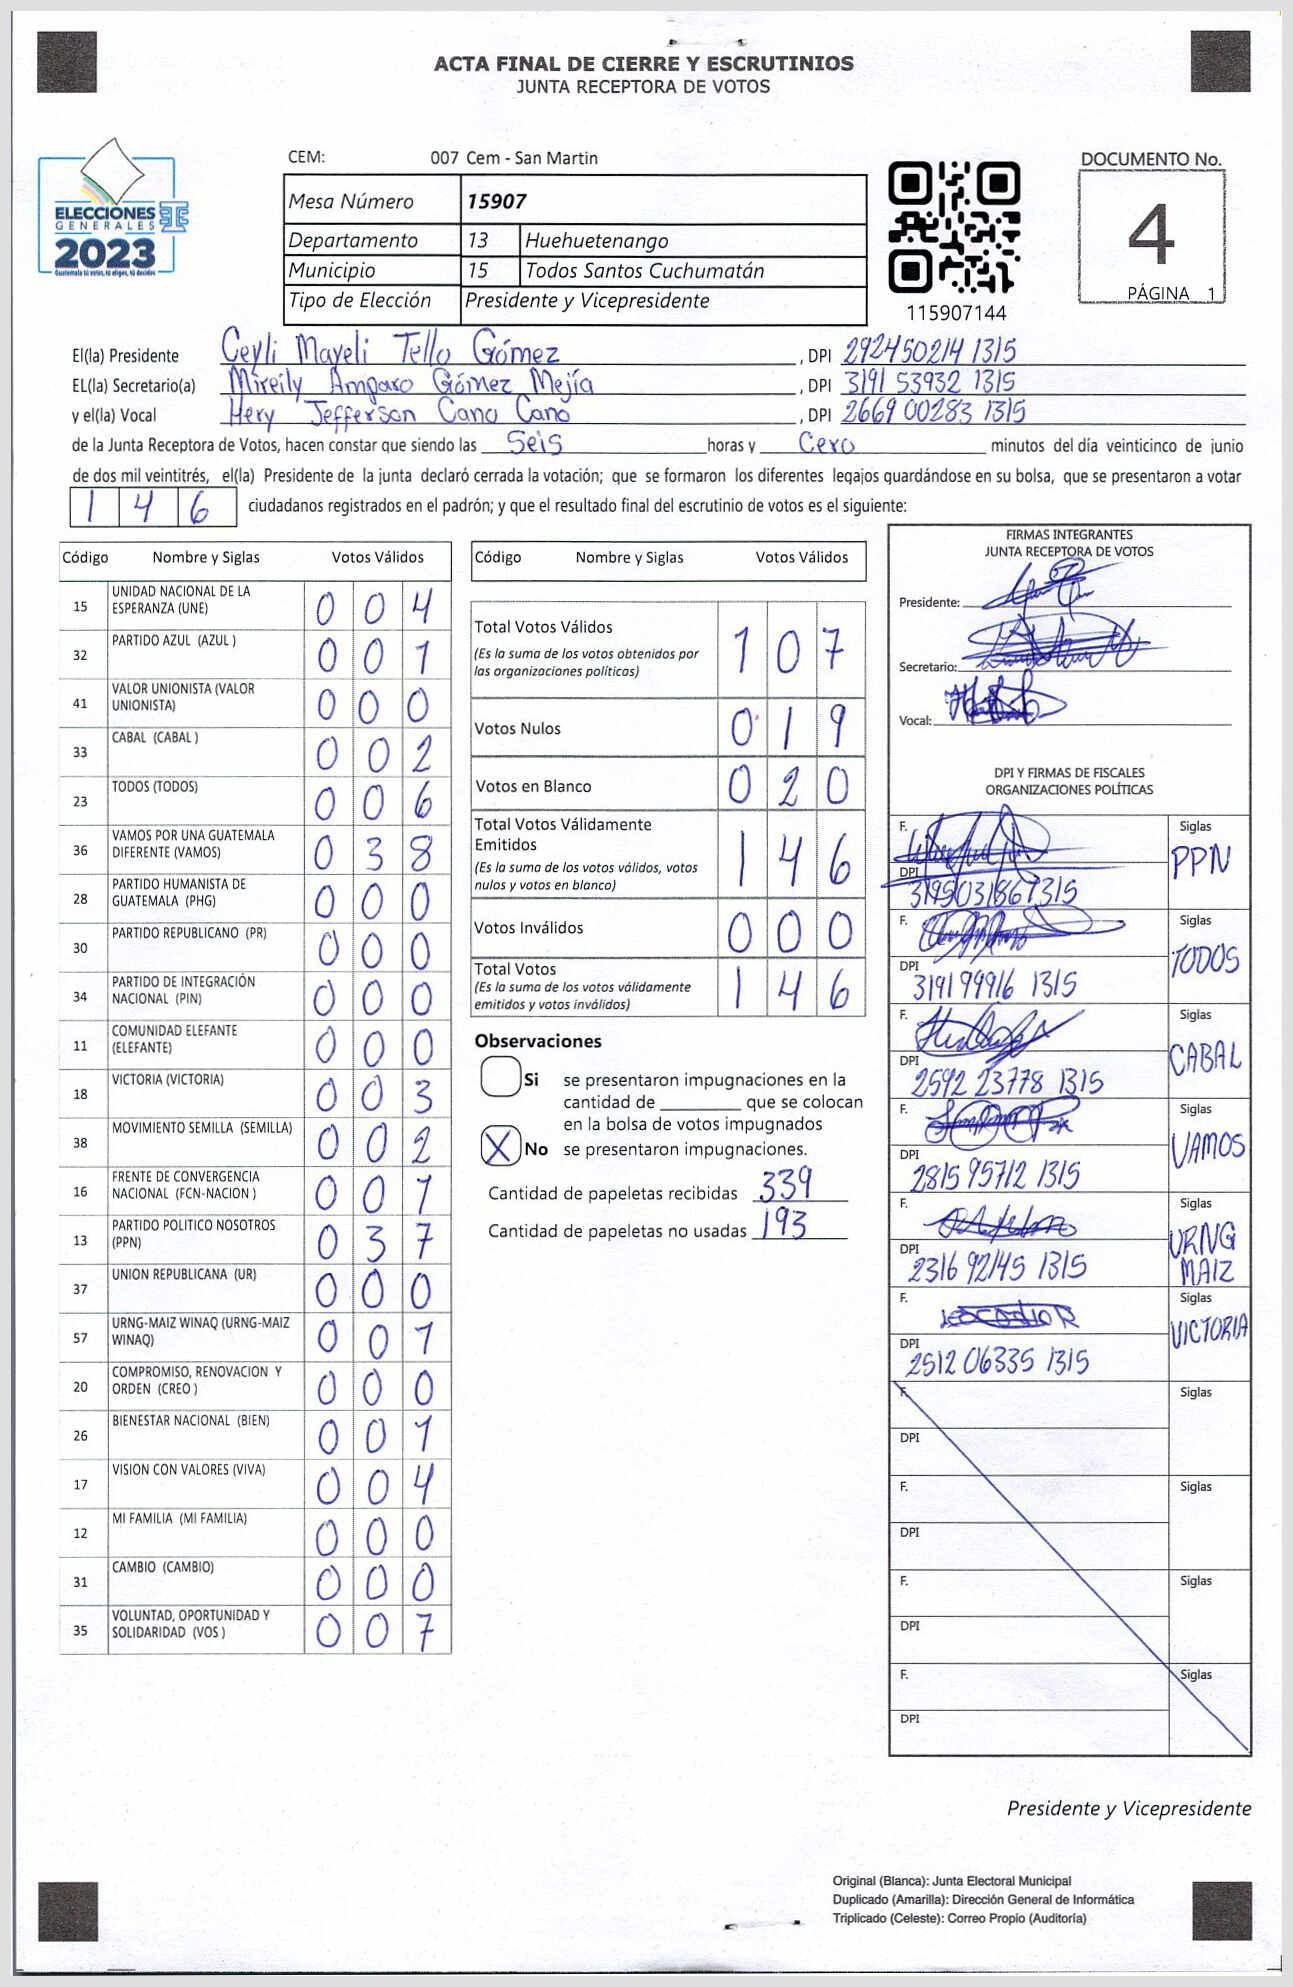 ACTA FINAL DE CIERRE Y ESCRUTINIOS
JUNTA RECEPTORA DE VOTOS
ELECCIONES
GENERALES
2023
Guatemala tú votas, tú eliges, tú decides
CEM: 007 Cem - San Martin
Mesa Número 15907
Departamento 13 Huehuetenango
Municipio 15 Todos Santos Cuchumatán
Tipo de Elección Presidente y Vicepresidente
115907144
DOCUMENTO No.
4
PÁGINA 1
El(la) Presidente Ceyli Mayeli Tello Gómez, DPI 292450214 1315
EL(la) Secretario(a) Mireily Amparo Gómez Mejía, DPI 3191 53932 1315
y el(la) Vocal Hery Jefferson Cano Cano, DPI 2669 00283 1315
de la Junta Receptora de Votos, hacen constar que siendo las Seis horas y Cero minutos del día veinticinco de junio
de dos mil veintitrés, el(la) Presidente de la junta declaró cerrada la votación; que se formaron los diferentes legajos guardándose en su bolsa, que se presentaron a votar
1 4 6 ciudadanos registrados en el padrón; y que el resultado final del escrutinio de votos es el siguiente:
Código Nombre y Siglas Votos Válidos
15 UNIDAD NACIONAL DE LA ESPERANZA (UNE) 0 0 4
32 PARTIDO AZUL (AZUL ) 0 0 1
41 VALOR UNIONISTA (VALOR UNIONISTA) 0 0 0
33 CABAL (CABAL ) 0 0 2
23 TODOS (TODOS) 0 0 6
36 VAMOS POR UNA GUATEMALA DIFERENTE (VAMOS) 0 3 8
28 PARTIDO HUMANISTA DE GUATEMALA (PHG) 0 0 0
30 PARTIDO REPUBLICANO (PR) 0 0 0
34 PARTIDO DE INTEGRACIÓN NACIONAL (PIN) 0 0 0
11 COMUNIDAD ELEFANTE (ELEFANTE) 0 0 0
18 VICTORIA (VICTORIA) 0 0 3
38 MOVIMIENTO SEMILLA (SEMILLA) 0 0 2
16 FRENTE DE CONVERGENCIA NACIONAL (FCN-NACION ) 0 0 1
13 PARTIDO POLITICO NOSOTROS (PPN) 0 3 7
37 UNION REPUBLICANA (UR) 0 0 0
57 URNG-MAIZ WINAQ (URNG-MAIZ WINAQ) 0 0 1
20 COMPROMISO, RENOVACION Y ORDEN (CREO ) 0 0 0
26 BIENESTAR NACIONAL (BIEN) 0 0 1
17 VISION CON VALORES (VIVA) 0 0 4
12 MI FAMILIA (MI FAMILIA) 0 0 0
31 CAMBIO (CAMBIO) 0 0 0
35 VOLUNTAD, OPORTUNIDAD Y SOLIDARIDAD (VOS ) 0 0 7
Código Nombre y Siglas Votos Válidos
Total Votos Válidos 1 0 7
(Es la suma de los votos obtenidos por
las organizaciones políticas)
Votos Nulos 0 1 9
Votos en Blanco 0 2 0
Total Votos Válidamente
Emitidos 1 4 6
(Es la suma de los votos válidos, votos
nulos y votos en blanco)
Votos Inválidos 0 0 0
Total Votos 1 4 6
(Es la suma de los votos válidamente
emitidos y votos inválidos)
Observaciones
Si se presentaron impugnaciones en la
cantidad de ________ que se colocan
en la bolsa de votos impugnados
X No se presentaron impugnaciones.
Cantidad de papeletas recibidas 339
Cantidad de papeletas no usadas 193
FIRMAS INTEGRANTES
JUNTA RECEPTORA DE VOTOS
Presidente:
Secretario:
Vocal:
DPI Y FIRMAS DE FISCALES
ORGANIZACIONES POLÍTICAS
F. Siglas
PPN
DPI 319503186 1315
F. Siglas
TODOS
DPI 3191 99916 1315
F. Siglas
CABAL
DPI 2592 23778 1315
F. Siglas
VAMOS
DPI 2815 95712 1315
F. Siglas
URNG
MAIZ
DPI 2316 92145 1315
F. Siglas
VICTORIA
DPI 2512 06335 1315
F. Siglas
DPI
F. Siglas
DPI
F. Siglas
DPI
F. Siglas
DPI
Presidente y Vicepresidente
Original (Blanca): Junta Electoral Municipal
Duplicado (Amarilla): Dirección General de Informática
Triplicado (Celeste): Correo Propio (Auditoría)